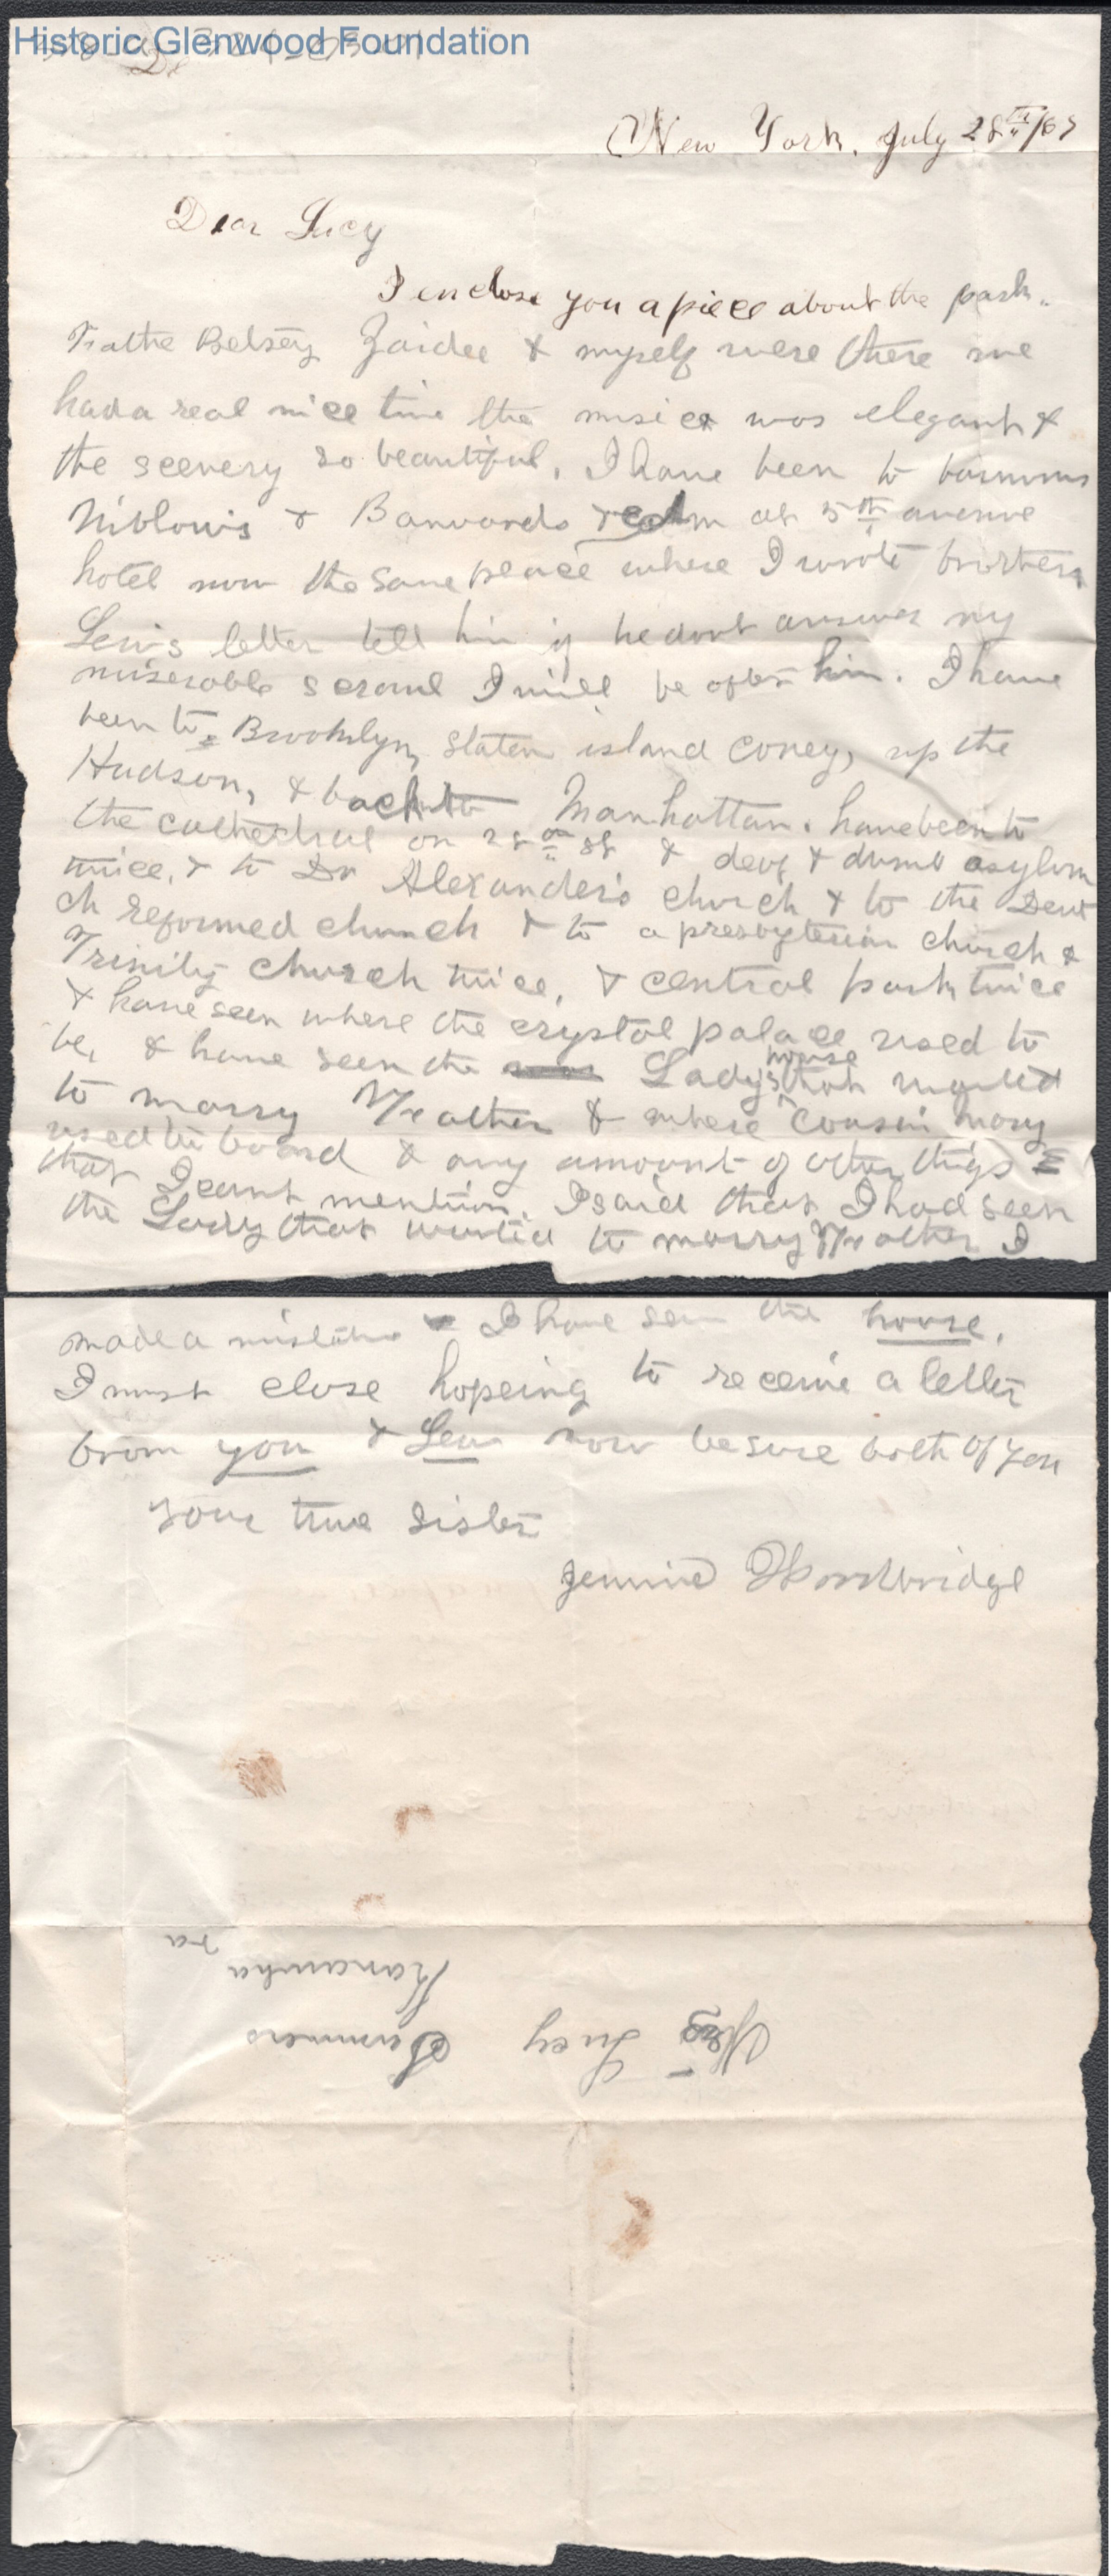 Historic Glenwood Foundation
New York. July 28th/67
Dear Lucy
I enclose you a piece about the park.
Frathe Betsey Zaidee & myself were there we
had a real nice time the music was elegant &
the scenery so beautiful, I have been to barnums
Niblows & Banvards & am at 5th avenue
hotel now the same peace where I wrote brothers
Lewis letter tell him if he dont answer my
miserable scrawl I will be after him. I have
been to Brooklyn, Staten island coney, up the
Hudson, & back to Manhattan. have been to
the cathedral on 28th st & deaf & dumb asylum
twice, & to Dr Alexander's church & to the Deut
ch reformed church & to a presbyterian church &
Trinity church twice, & central park twice
& have seen where the crystal palace used to
be, & have seen the Lady's house that wanted
to marry Frather & where cousin Mary
used to board & any amount of other things
that I cant mention. I said that I had seen
the Lady that wanted to marry Frather I
made a mistake I have seen the house.
I must close hopeing to receive a letter
from you & Lew now be sure both of you
your true sister
Jennie Woodbridge
Lucy Summers
Kanawha
va